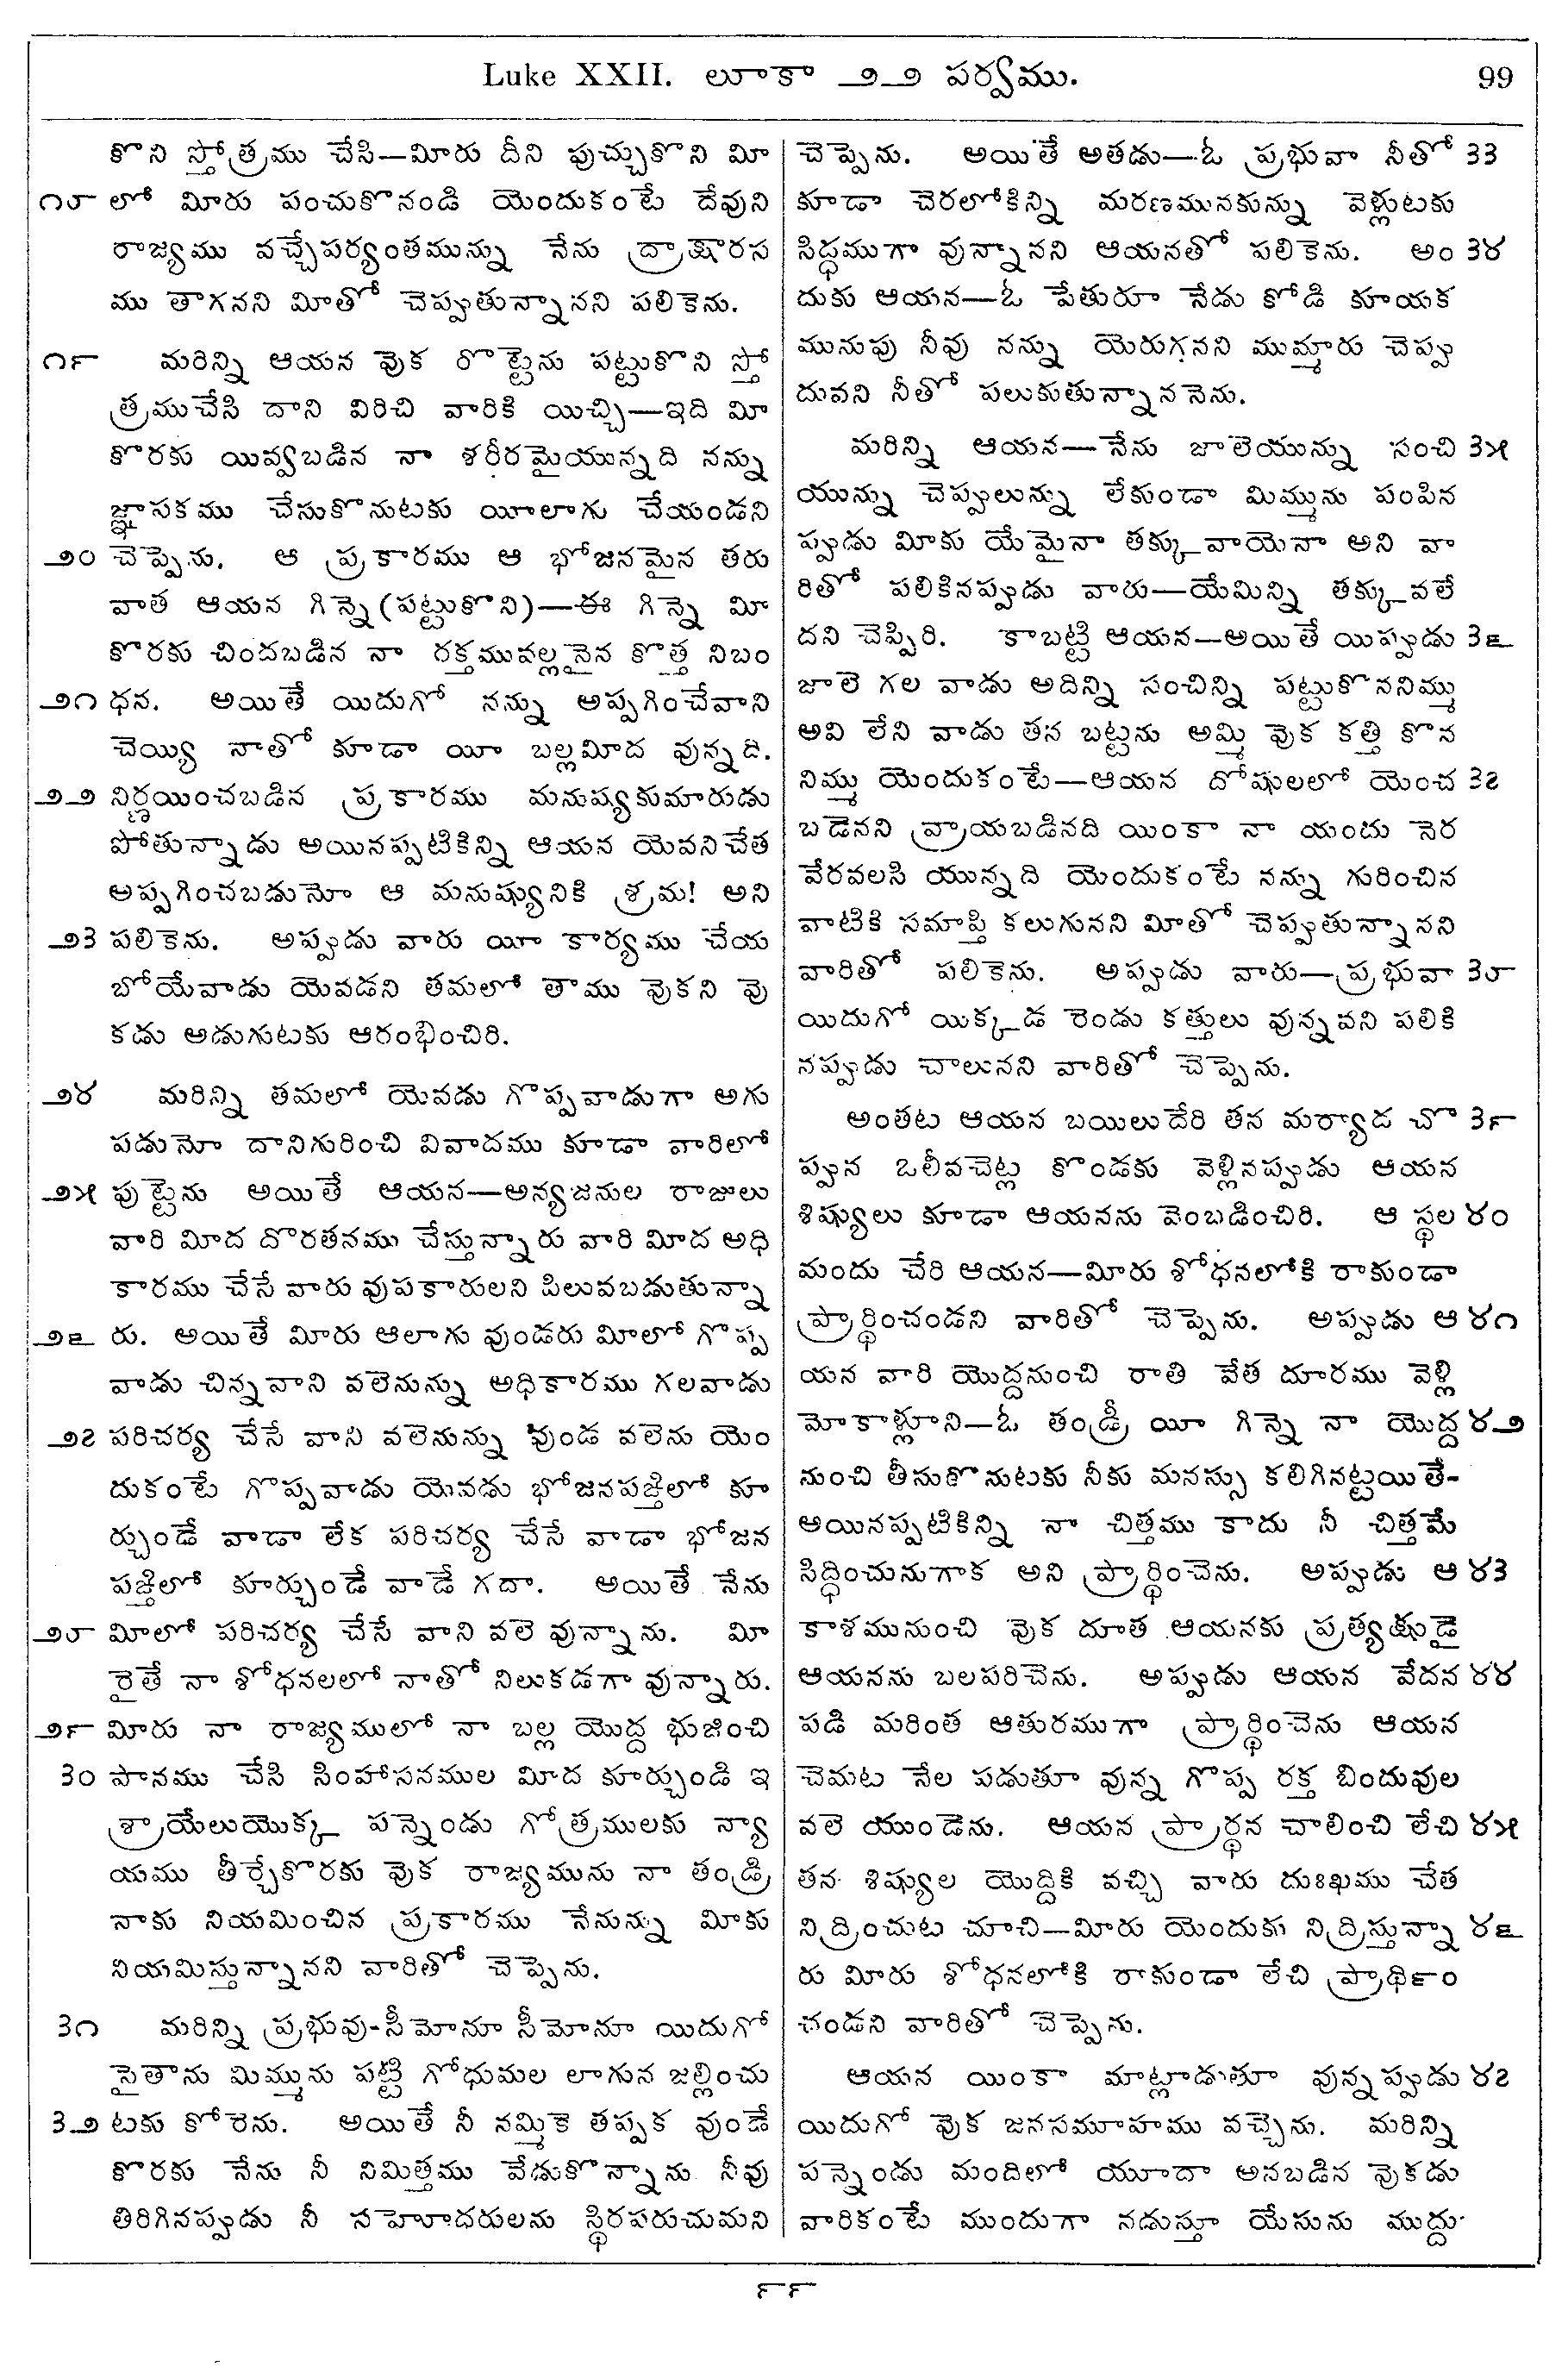 Luke XXII. లూకా ౨౨ పర్వము. 99
కొని స్తోత్రము చేసి—మీరు దీని పుచ్చుకొని మీ
౧౮ లో మీరు పంచుకొనండి యెందుకంటే దేవుని
రాజ్యము వచ్చేపర్యంతమున్ను నేను ద్రాక్షారస
ము తాగనని మీతో చెప్పుతున్నానని పలికెను.
౧౯ మరిన్ని ఆయన వొక రొట్టెను పట్టుకొని స్తో
త్రముచేసి దాని విరిచి వారికి యిచ్చి—ఇది మీ
కొరకు యివ్వబడిన నా శరీరమైయున్నది నన్ను
జ్ఞాపకము చేసుకొనుటకు యీలాగు చేయండని
౨౦ చెప్పెను. ఆ ప్రకారము ఆ భోజనమైన తరు
వాత ఆయన గిన్నె (పట్టుకొని)—ఈ గిన్నె మీ
కొరకు చిందబడిన నా రక్తమువల్లనైన కొత్త నిబం
౨౧ ధన. అయితే యిదుగో నన్ను అప్పగించేవాని
చెయ్యి నాతో కూడా యీ బల్లమీద వున్నది.
౨౨ నిర్ణయించబడిన ప్రకారము మనుష్యకుమారుడు
పోతున్నాడు అయినప్పటికిన్ని ఆయన యెవనిచేత
అప్పగించబడునో ఆ మనుష్యునికి శ్రమ! అని
౨౩ పలికెను. అప్పుడు వారు యీ కార్యము చేయ
బోయేవాడు యెవడని తమలో తాము వొకని వొ
కడు అడుగుటకు ఆరంభించిరి.
౨౪ మరిన్ని తమలో యెవడు గొప్పవాడుగా అగు
పడునో దానిగురించి వివాదము కూడా వారిలో
౨౫ పుట్టెను అయితే ఆయన—అన్యజనుల రాజులు
వారి మీద దొరతనము చేస్తున్నారు వారి మీద అధి
కారము చేసే వారు వుపకారులని పిలువబడుతున్నా
౨౬ రు. అయితే మీరు ఆలాగు వుండరు మీలో గొప్ప
వాడు చిన్నవాని వలెనున్ను అధికారము గలవాడు
౨౭ పరిచర్య చేసే వాని వలెనున్ను వుండ వలెను యెం
దుకంటే గొప్పవాడు యెవడు భోజనపఙ్తిలో కూ
ర్చుండే వాడా లేక పరిచర్య చేసే వాడా భోజన
పఙ్తిలో కూర్చుండే వాడే గదా. అయితే నేను
౨౮ మీలో పరిచర్య చేసే వాని వలె వున్నాను. మీ
రైతే నా శోధనలలో నాతో నిలుకడగా వున్నారు.
౨౯ మీరు నా రాజ్యములో నా బల్ల యొద్ద భుజించి
౩౦ పానము చేసి సింహాసనముల మీద కూర్చుండి ఇ
శ్రాయేలుయొక్క పన్నెండు గోత్రములకు న్యా
యము తీర్చేకొరకు వొక రాజ్యమును నా తండ్రి
నాకు నియమించిన ప్రకారము నేనున్ను మీకు
నియమిస్తున్నానని వారితో చెప్పెను.
౩౧ మరిన్ని ప్రభువు-సీమోనూ సీమోనూ యిదుగో
సైతాను మిమ్మును పట్టి గోధుమల లాగున జల్లించు
౩౨ టకు కోరెను. అయితే నీ నమ్మికె తప్పక వుండే
కొరకు నేను నీ నిమిత్తము వేడుకొన్నాను నీవు
తిరిగినప్పుడు నీ సహోదరులను స్థిరపరుచుమని
చెప్పెను. అయితే అతడు—ఓ ప్రభువా నీతో ౩౩
కూడా చెరలోకిన్ని మరణమునకున్ను వెళ్లుటకు
సిద్ధముగా వున్నానని ఆయనతో పలికెను. అం ౩౪
దుకు ఆయన—ఓ పేతురూ నేడు కోడి కూయక
మునుపు నీవు నన్ను యెరుగనని ముమ్మారు చెప్పు
దువని నీతో పలుకుతున్నాననెను.
మరిన్ని ఆయన—నేను జాలెయున్ను సంచి ౩౫
యున్ను చెప్పులున్ను లేకుండా మిమ్మును పంపిన
ప్పుడు మీకు యేమైనా తక్కువాయెనా అని వా
రితో పలికినప్పుడు వారు—యేమిన్ని తక్కువలే
దని చెప్పిరి. కాబట్టి ఆయన—అయితే యిప్పుడు ౩౬
జాలె గల వాడు అదిన్ని సంచిన్ని పట్టుకొననిమ్ము
అవి లేని వాడు తన బట్టను అమ్మి వొక కత్తి కొన
నిమ్ము యెందుకంటే—ఆయన దోషులలో యెంచ ౩౭
బడెనని వ్రాయబడినది యింకా నా యందు నెర
వేరవలసి యున్నది యెందుకంటే నన్ను గురించిన
వాటికి సమాప్తి కలుగునని మీతో చెప్పుతున్నానని
వారితో పలికెను. అప్పుడు వారు—ప్రభువా ౩౮
యిదుగో యిక్కడ రెండు కత్తులు వున్నవని పలికి
నప్పుడు చాలునని వారితో చెప్పెను.
అంతట ఆయన బయిలుదేరి తన మర్యాద చొ ౩౯
ప్పున ఒలీవచెట్ల కొండకు వెళ్లినప్పుడు ఆయన
శిష్యులు కూడా ఆయనను వెంబడించిరి. ఆ స్థల ౪౦
మందు చేరి ఆయన—మీరు శోధనలోకి రాకుండా
ప్రార్థించండని వారితో చెప్పెను. అప్పుడు ఆ ౪౧
యన వారి యొద్దనుంచి రాతి వేత దూరము వెళ్లి
మోకాళ్లూని—ఓ తండ్రీ యీ గిన్నె నా యొద్ద ౪౨
నుంచి తీసుకొనుటకు నీకు మనస్సు కలిగినట్టయితే-
అయినప్పటికిన్ని నా చిత్తము కాదు నీ చిత్తమే
సిద్ధించునుగాక అని ప్రార్థించెను. అప్పుడు ఆ ౪౩
కాశమునుంచి వొక దూత ఆయనకు ప్రత్యక్షుడై
ఆయనను బలపరిచెను. అప్పుడు ఆయన వేదన ౪౪
పడి మరింత ఆతురముగా ప్రార్థించెను ఆయన
చెమట నేల పడుతూ వున్న గొప్ప రక్త బిందువుల
వలె యుండెను. ఆయన ప్రార్థన చాలించి లేచి ౪౫
తన శిష్యుల యొద్దికి వచ్చి వారు దుఃఖము చేత
నిద్రించుట చూచి—మీరు యెందుకు నిద్రిస్తున్నా ౪౬
రు మీరు శోధనలోకి రాకుండా లేచి ప్రార్థిం
చండని వారితో చెప్పెను.
ఆయన యింకా మాట్లాడుతూ వున్నప్పుడు ౪౭
యిదుగో వొక జనసమూహము వచ్చెను. మరిన్ని
పన్నెండు మందిలో యూదా అనబడిన వొకడు
వారికంటే ముందుగా నడుస్తూ యేసును ముద్దు
౯౯